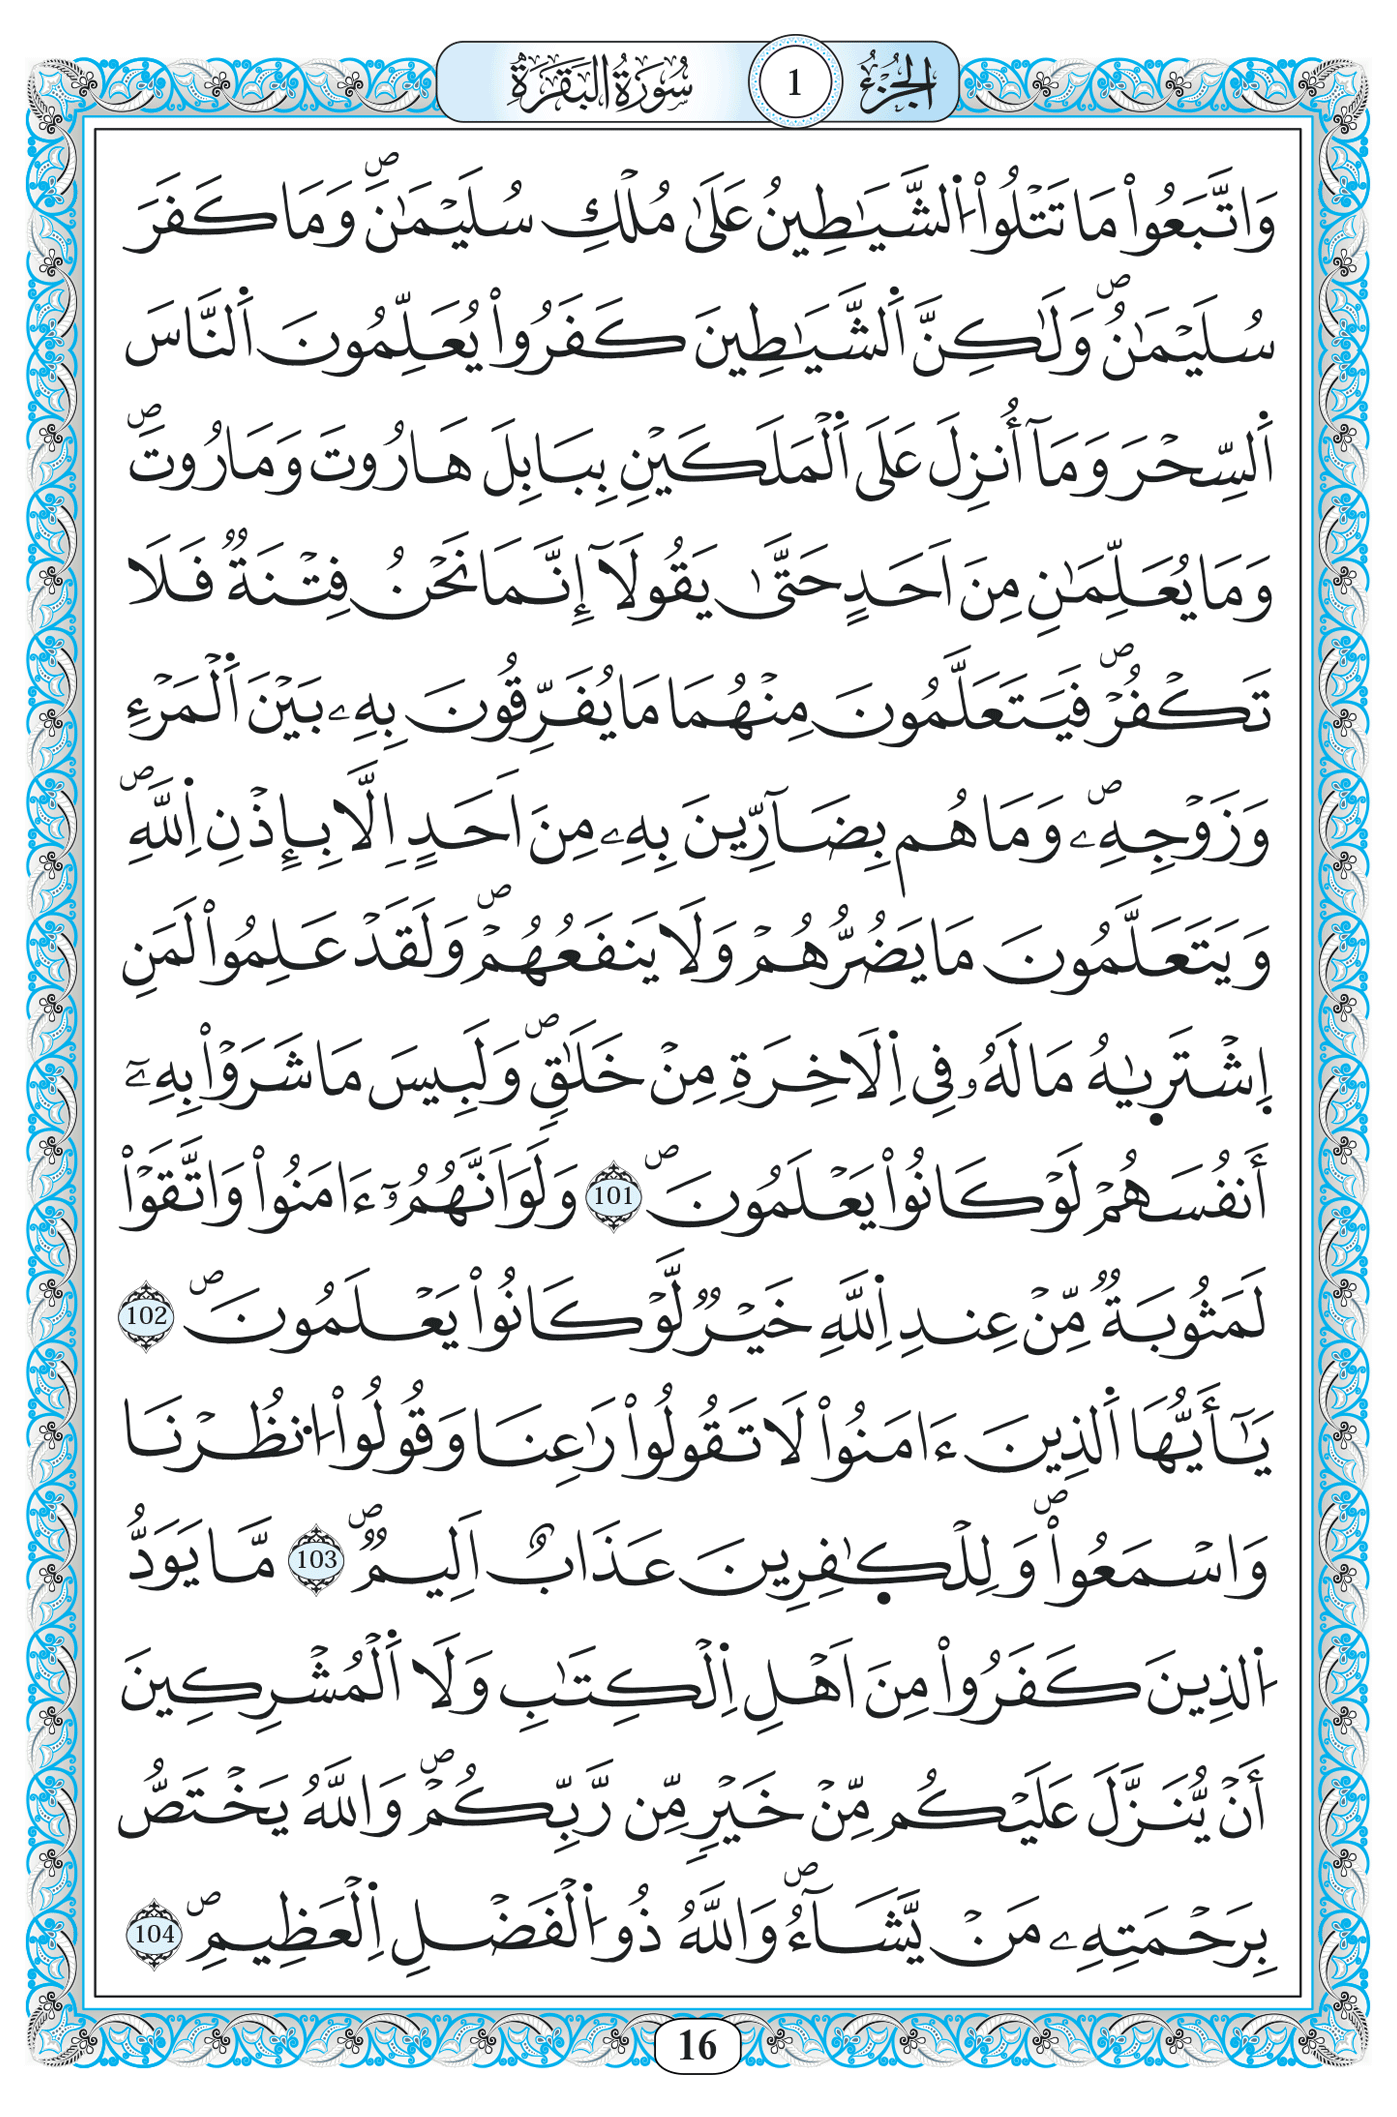 الجزء 1 سورة البقرة
وَاتَّبَعُواْ مَا تَتْلُواْ اُ۬لشَّيَٰطِينُ عَلَىٰ مُلْكِ سُلَيْمَٰنَۖ وَمَا كَفَرَ
سُلَيْمَٰنُۖ وَلَٰكِنَّ اَ۬لشَّيَٰطِينَ كَفَرُواْ يُعَلِّمُونَ اَ۬لنَّاسَ
اَ۬لسِّحْرَ وَمَآ أُنزِلَ عَلَى اَ۬لْمَلَكَيْنِ بِبَابِلَ هَارُوتَ وَمَارُوتَۖ
وَمَا يُعَلِّمَٰنِ مِنَ اَحَدٍ حَتَّىٰ يَقُولَآ إِنَّمَا نَحْنُ فِتْنَةٞ فَلَا
تَكْفُرْۖ فَيَتَعَلَّمُونَ مِنْهُمَا مَا يُفَرِّقُونَ بِهِۦ بَيْنَ اَ۬لْمَرْءِ
وَزَوْجِهِۦۖ وَمَا هُم بِضَآرِّينَ بِهِۦ مِنَ اَحَدٍ اِلَّا بِإِذْنِ اِ۬للَّهِۖ
وَيَتَعَلَّمُونَ مَا يَضُرُّهُمْ وَلَا يَنفَعُهُمْۖ وَلَقَدْ عَلِمُواْ لَمَنِ
اِ۪شْتَر۪يٰهُ مَا لَهُۥ فِي اِ۬لَاخِرَةِ مِنْ خَلَٰقٖۖ وَلَبِيسَ مَا شَرَوْاْ بِهِۦٓ
أَنفُسَهُمْ لَوْ كَانُواْ يَعْلَمُونَۖ 101 وَلَوَ اَنَّهُمُۥٓ ءَامَنُواْ وَاتَّقَوْاْ
لَمَثُوبَةٞ مِّنْ عِندِ اِ۬للَّهِ خَيْرٞ لَّوْ كَانُواْ يَعْلَمُونَۖ 102
يَٰٓأَيُّهَا اَ۬لذِينَ ءَامَنُواْ لَا تَقُولُواْ رَٰعِنَا وَقُولُواْ اُ۟نظُرْنَا
وَاسْمَعُواْۖ وَلِلْكٰ۪فِرِينَ عَذَابٌ اَلِيمٞۖ 103 مَّا يَوَدُّ
اُ۬لذِينَ كَفَرُواْ مِنَ اَهْلِ اِ۬لْكِتَٰبِ وَلَا اَ۬لْمُشْرِكِينَ
أَنْ يُّنَزَّلَ عَلَيْكُم مِّنْ خَيْرٖ مِّن رَّبِّكُمْۖ وَاللَّهُ يَخْتَصُّ
بِرَحْمَتِهِۦ مَنْ يَّشَآءُۖ وَاللَّهُ ذُو اُ۬لْفَضْلِ اِ۬لْعَظِيمِۖ 104
16